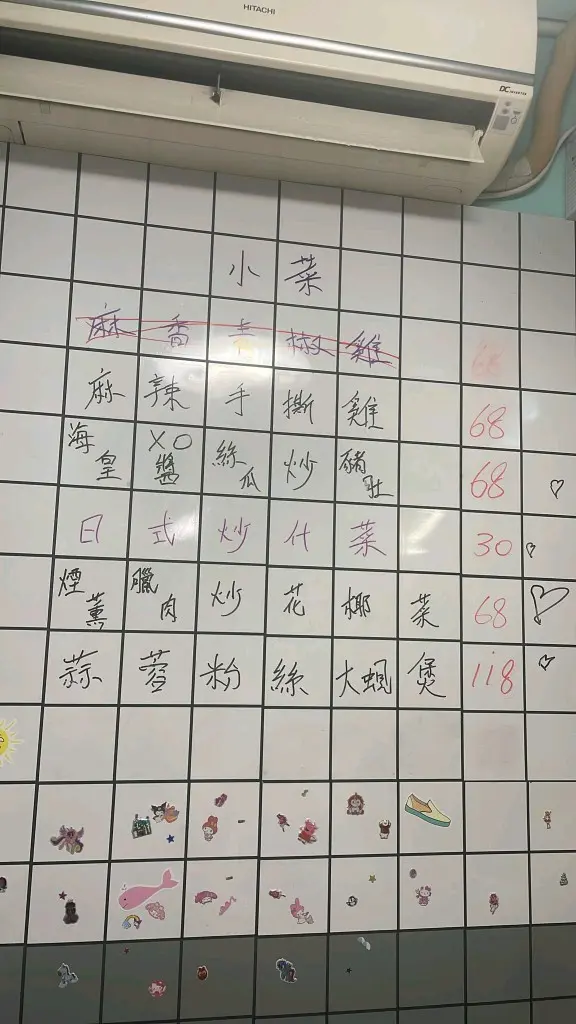 HITACHI
DC INVERTER
小菜
麻香青椒雞 68
麻辣手撕雞 68
海皇XO醬絲瓜炒豬肚 68
日式炒什菜 30
煙薰臘肉炒花椰菜 68
蒜蓉粉絲大蜆煲 118